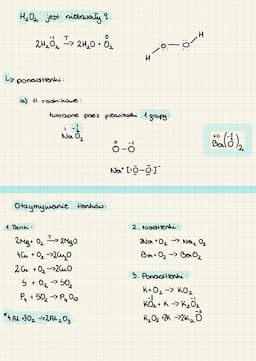 H₂O₂ jest nietrwały ?
2H₂O₂ →T 2H₂O + O₂
H O O H
↳ ponadtlenki:
a) tl. rodnikowe:
tworzone przez pierwiastki 1 grupy
NaO₂
O-O
Na⁺ [:O-O:]⁻
Ba(O₂)₂
Otrzymywanie tlenków:
1. Tlenki:
2Mg + O₂ →T 2MgO
4Cu + O₂ → 2Cu₂O
2Cu + O₂ → 2CuO
S + O₂ → SO₂
P₄ + 5O₂ → P₄O₁₀
*4Al + 3O₂ → 2Al₂O₃
2. Nadtlenki:
2Na + O₂ → Na₂O₂
Ba + O₂ → BaO₂
3. Ponadtlenki:
K + O₂ → KO₂
KO₂ + K → K₂O₂
K₂O₂ + 2K → 2K₂O